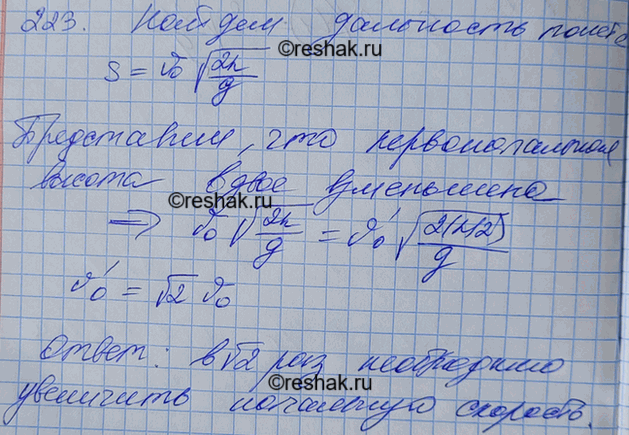 223. Найдем дальность полета
©reshak.ru
S = v₀ √(2h/g)
Представим, что первоначальная
высота вдвое уменьшена
©reshak.ru
⇒ v₀ √(2h/g) = v₀' √(2(h/2)/g)
v₀' = √2 v₀
Ответ: в √2 раз необходимо
©reshak.ru
увеличить начальную скорость.